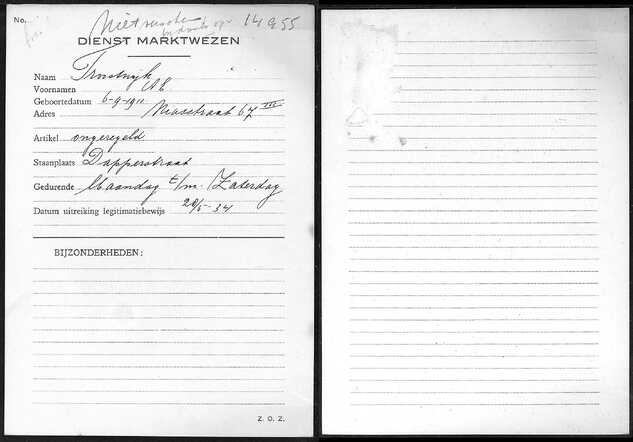 No.
Niet 14955
DIENST MARKTWEZEN
Naam
Voornamen
Geboortedatum 6-9-1911
Adres Niasstraat 67 III
Artikel ongeregeld
Staanplaats Dapperstraat
Gedurende Maandag t/m Zaterdag
Datum uitreiking legitimatiebewijs 20/5-34
BIJZONDERHEDEN:
Z. O. Z.